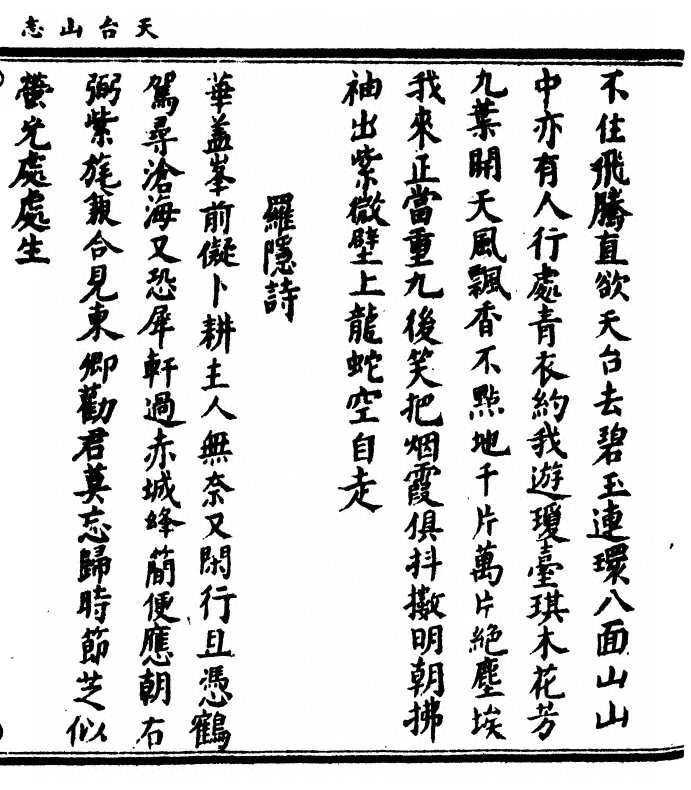 天台山志
不住飛騰直欲天台去碧玉連環八面山山
中亦有人行處青衣約我遊瓊臺琪木花芳
九葉開天風飄香不點地千片萬片絕塵埃
我來正當重九後笑把烟霞俱抖擻明朝拂
袖出紫微壁上龍蛇空自走
羅隱詩
華盖峯前儗卜耕主人無奈又閑行且憑鶴
駕尋滄海又恐犀軒過赤城絳簡便應朝右
弼紫旄兼合見東卿勸君莫忘歸時節芝似
螢光處處生